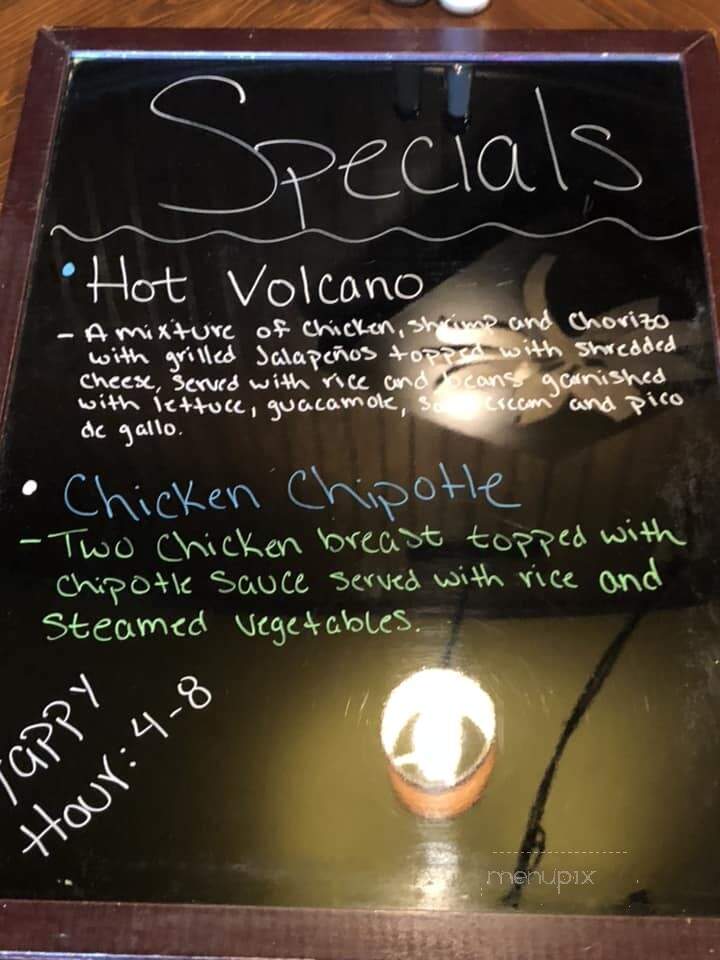 Specials
• Hot Volcano
- A mixture of chicken, shrimp and chorizo
with grilled Jalapeños topped with shredded
cheese, served with rice and beans garnished
with lettuce, guacamole, sour cream and pico
de gallo.
• Chicken Chipotle
- Two chicken breast topped with
chipotle sauce served with rice and
steamed vegetables.
Happy
Hour: 4-8
menupix